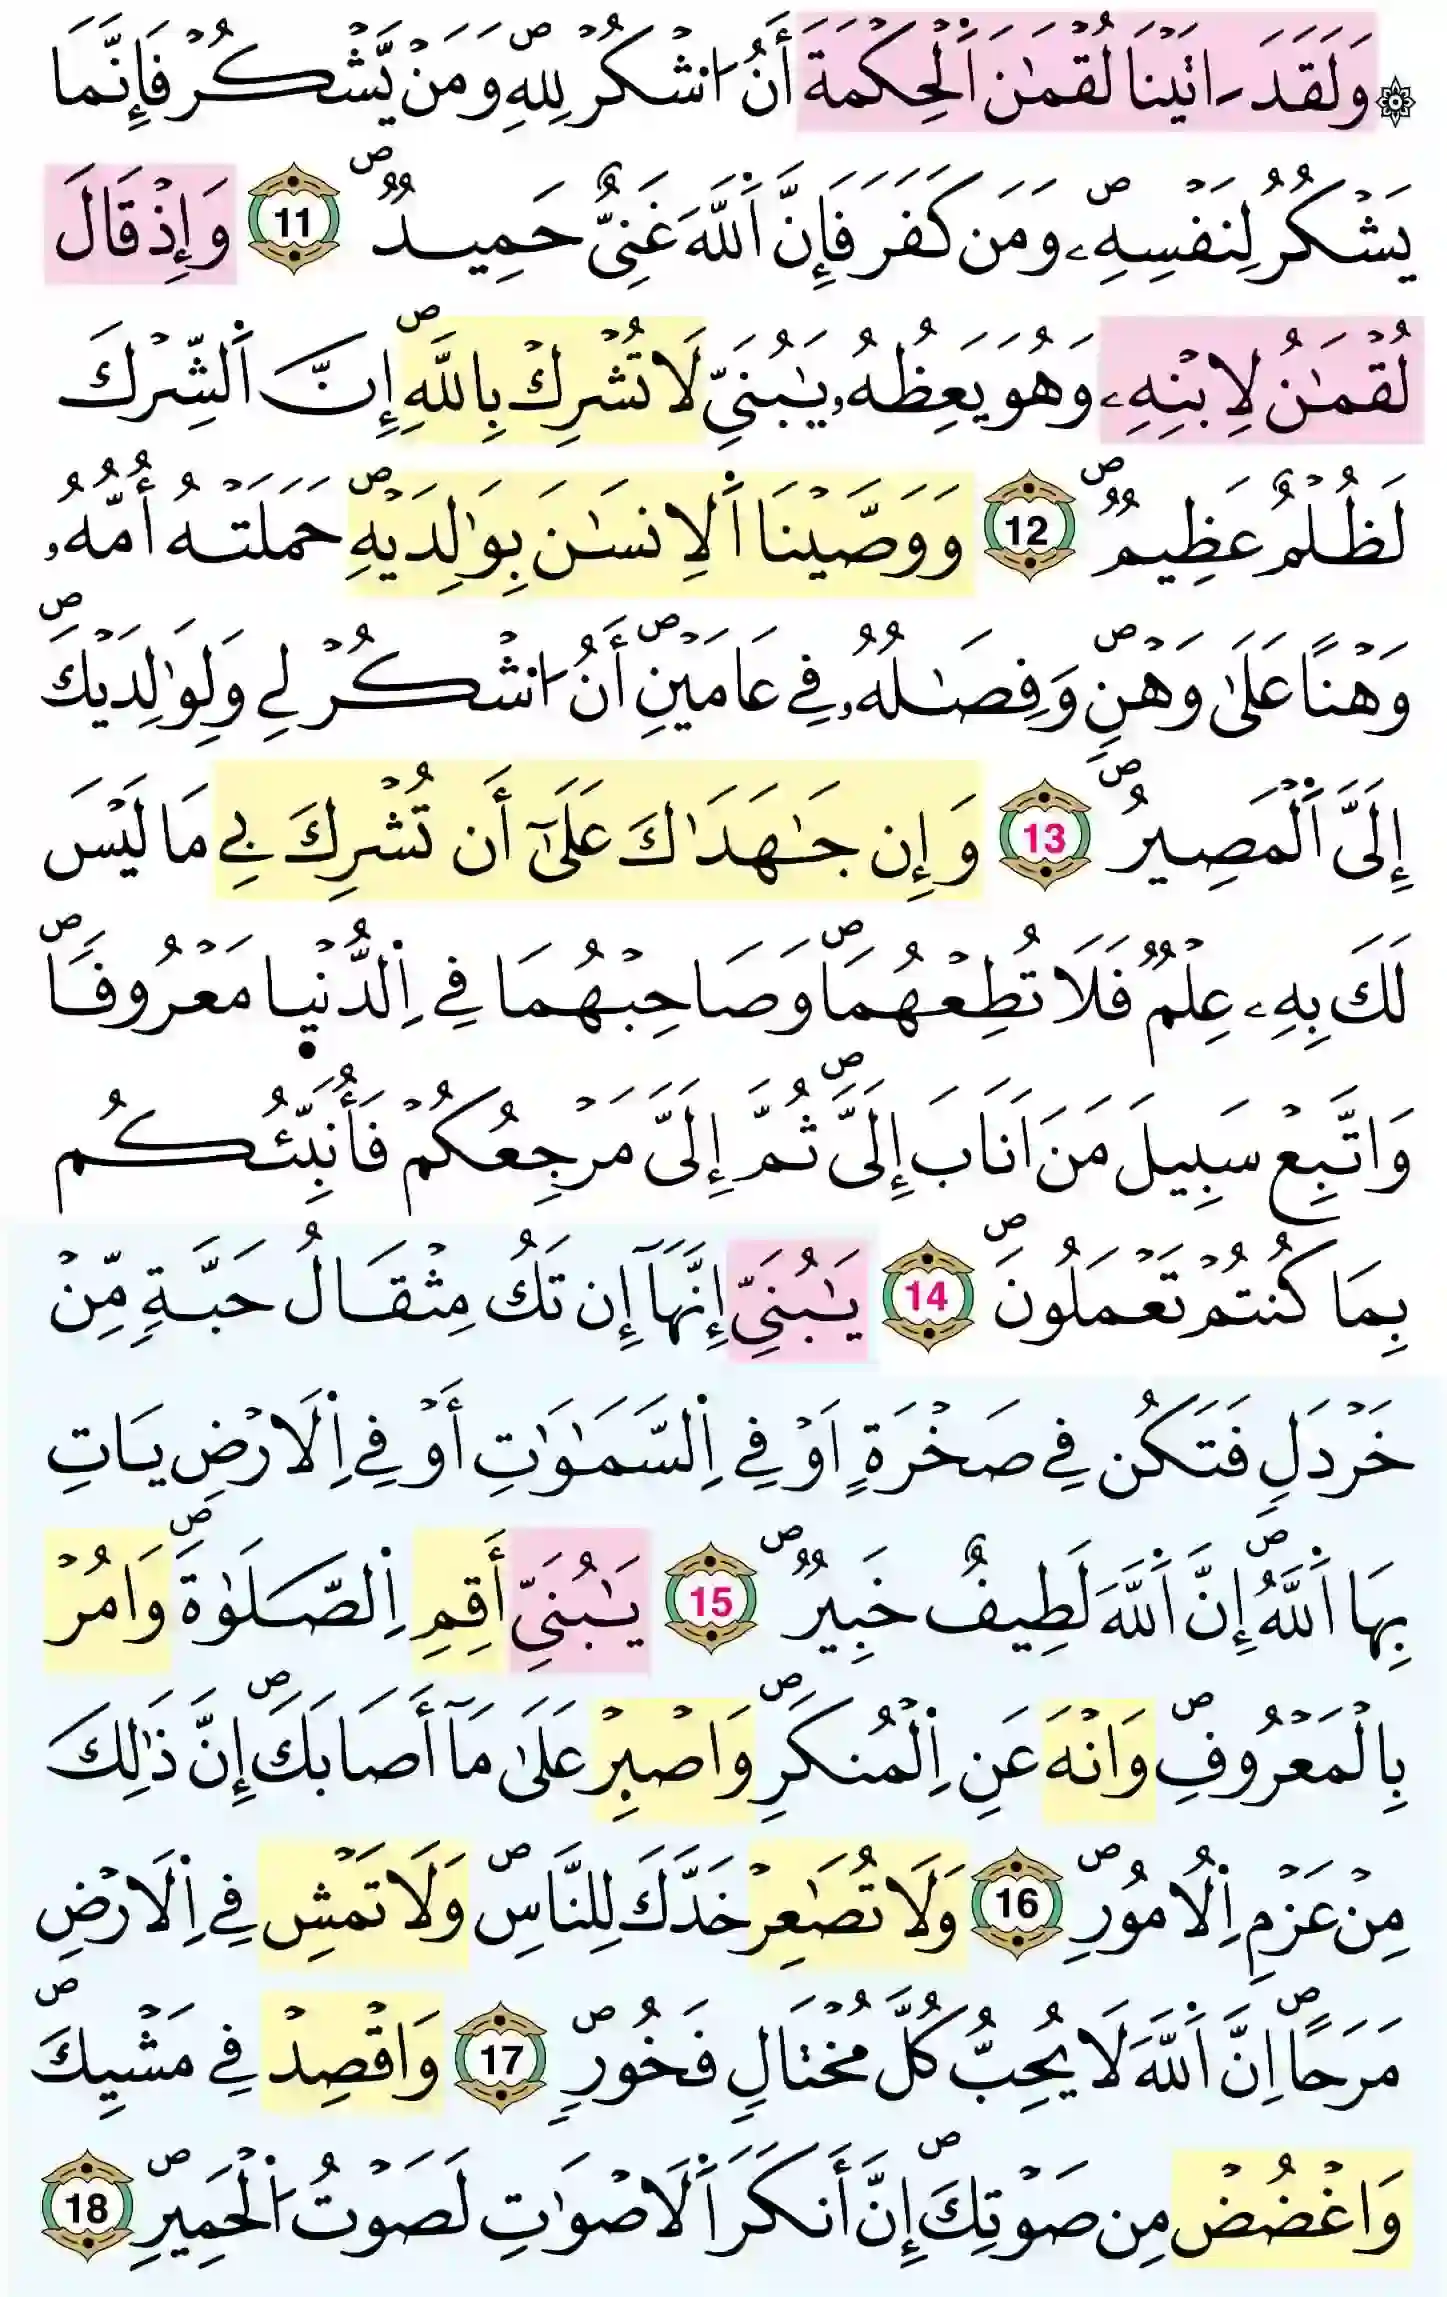 ۞وَلَقَدَ اٰتَيْنَا لُقْمَٰنَ اَ۬لْحِكْمَةَ أَنُ ا۟شْكُرْ لِلهِۖ وَمَنْ يَّشْكُرْ فَإِنَّمَا
يَشْكُرُ لِنَفْسِهِۦۖ وَمَن كَفَرَ فَإِنَّ اَ۬للَّهَ غَنِيٌّ حَمِيدٌۖ 11 وَإِذْ قَالَ
لُقْمَٰنُ لِابْنِهِۦ وَهُوَ يَعِظُهُۥ يَٰبُنَيِّ لَا تُشْرِكْ بِاللَّهِۖ إِنَّ اَ۬لشِّرْكَ
لَظُلْمٌ عَظِيمٌۖ 12 وَوَصَّيْنَا اَ۬لِانسَٰنَ بِوَٰلِدَيْهِۖ حَمَلَتْهُ أُمُّهُۥ
وَهْناً عَلَىٰ وَهْنٍۖ وَفِصَٰلُهُۥ فِے عَامَيْنِۖ أَنُ ا۟شْكُرْ لِے وَلِوَٰلِدَيْكَۖ
إِلَيَّ اَ۬لْمَصِيرُۖ 13 وَإِن جَٰهَدَٰكَ عَلَىٰٓ أَن تُشْرِكَ بِے مَا لَيْسَ
لَكَ بِهِۦ عِلْمٌ فَلَا تُطِعْهُمَاۖ وَصَاحِبْهُمَا فِے اِ۬لدُّنْيَا مَعْرُوفاًۖ
وَاتَّبِعْ سَبِيلَ مَنَ اَنَابَ إِلَيَّۖ ثُمَّ إِلَيَّ مَرْجِعُكُمْ فَأُنَبِّئُكُم
بِمَا كُنتُمْ تَعْمَلُونَۖ 14 يَٰبُنَيِّ إِنَّهَآ إِن تَكُ مِثْقَالُ حَبَّةٍ مِّنْ
خَرْدَلٍ فَتَكُن فِے صَخْرَةٍ اَوْ فِے اِ۬لسَّمَٰوَٰتِ أَوْ فِے اِ۬لَارْضِ يَاتِ
بِهَا اَ۬للَّهُۖ إِنَّ اَ۬للَّهَ لَطِيفٌ خَبِيرٌۖ 15 يَٰبُنَيِّ أَقِمِ اِ۬لصَّلَوٰةَۖ وَامُرْ
بِالْمَعْرُوفِۖ وَانْهَ عَنِ اِ۬لْمُنكَرِۖ وَاصْبِرْ عَلَىٰ مَآ أَصَابَكَۖ إِنَّ ذَٰلِكَ
مِنْ عَزْمِ اِ۬لُامُورِۖ 16 وَلَا تُصَٰعِرْ خَدَّكَ لِلنَّاسِۖ وَلَا تَمْشِ فِے اِ۬لَارْضِ
مَرَحاًۖ اِنَّ اَ۬للَّهَ لَا يُحِبُّ كُلَّ مُخْتَالٍ فَخُورٍۖ 17 وَاقْصِدْ فِے مَشْيِكَۖ
وَاغْضُضْ مِن صَوْتِكَۖ إِنَّ أَنكَرَ اَ۬لَاصْوَٰتِ لَصَوْتُ اُ۬لْحَمِيرِۖ 18